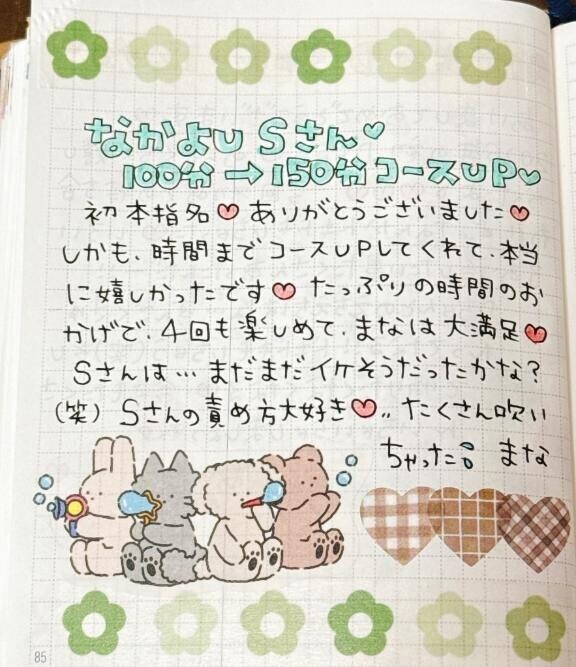 なかよしSさん♡
100分→150分コースUP♡
初本指名♡ありがとうございました♡
しかも、時間までコースUPしてくれて、本当
に嬉しかったです♡たっぷりの時間のお
かげで、4回も楽しめて、まなは大満足♡
Sさんは…まだまだイケそうだったかな？
(笑)Sさんの責め方大好き♡‥たくさん吹い
ちゃった まな
85